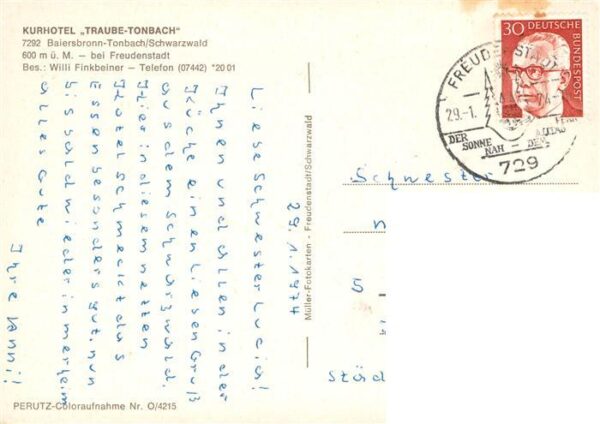 KURHOTEL „TRAUBE-TONBACH"
7292 Baiersbronn-Tonbach/Schwarzwald
600 m ü. M. – bei Freudenstadt
Bes.: Willi Finkbeiner – Telefon (07442) *2001
29.1.1974
Liebe Schwester Lucia!
Ihnen und allen in der
Küche einen lieben Gruß
aus dem Schwarzwald.
Hier in diesem netten
Hotel schmeckt das
Essen besonders gut. nun
bis bald wieder in
alles Gute
Ihre
PERUTZ-Coloraufnahme Nr. O/4215
Müller-Fotokarten - Freudenstadt/Schwarzwald
30 DEUTSCHE
BUNDESPOST
FREUDENSTADT
29.-1.
DER
SONNE
NAH
DEM
ALLTAG
FERN
729
Schwester
n
S
Städ